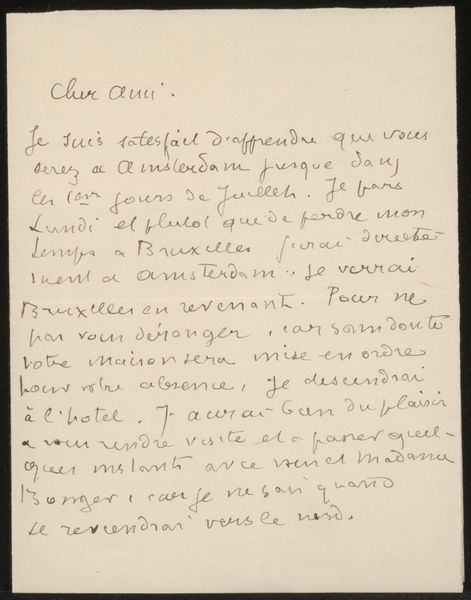 Cher ami.
Je suis satesfait d'apprendre que vous
serez a Amsterdam jusque dans
les 1ers jours de Juillet. Je pars
Lundi et plutot que de perdre mon
temps a Bruxelles j'irai directe
ment a Amsterdam. Je verrai
Bruxelles en revenant. Pour ne
pas vous déranger, car sans doute
votre maison sera mise en ordre
pour votre absence, je descendrai
à l'hotel. J'aurai bien du plaisir
a vous rendre visite et a passer quel-
ques instants avec vous et Madame
Bonger, car je ne sais quand
je reviendrai vers le nord.